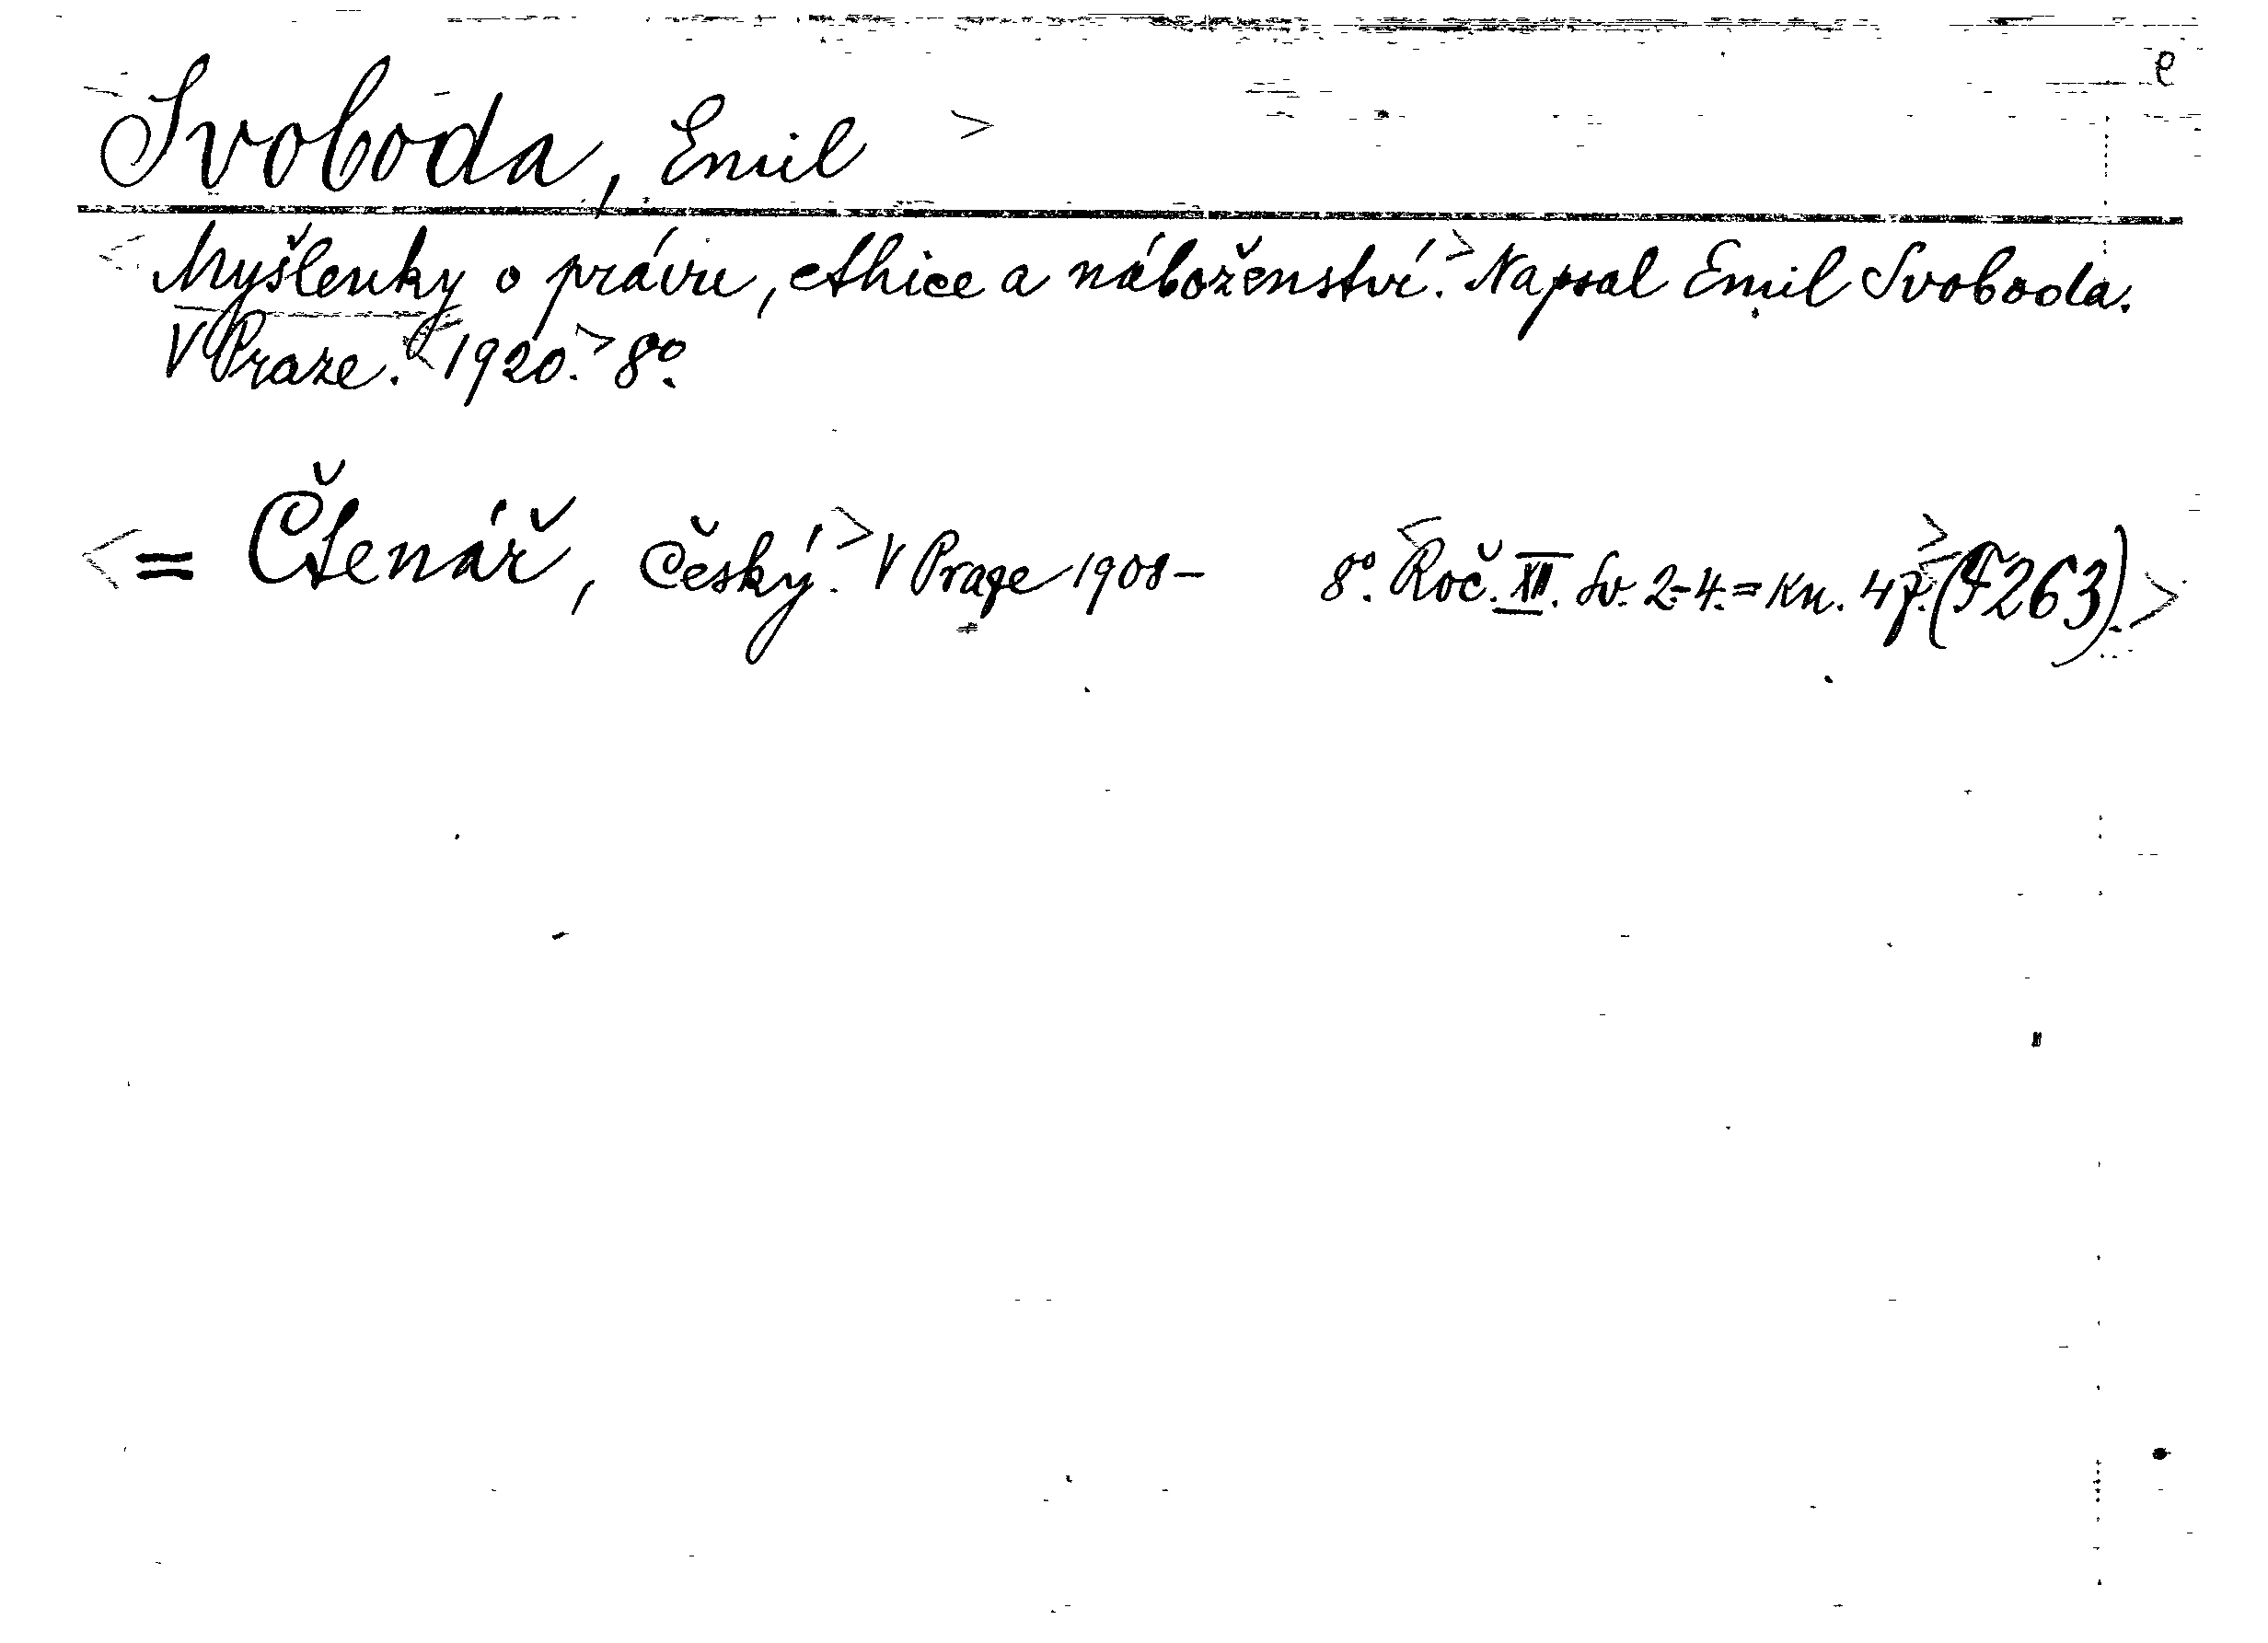 e
Svoboda, Emil >
< Myšlenky o právu, ethice a náboženství.> Napsal Emil Svoboda.
V Praze. <1920.> 8º.
<= Čtenář, Český.> V Praze 1908- 8º. <Roč. XII. Sv. 2.-4. = Kn. 47.> <(F 263).>